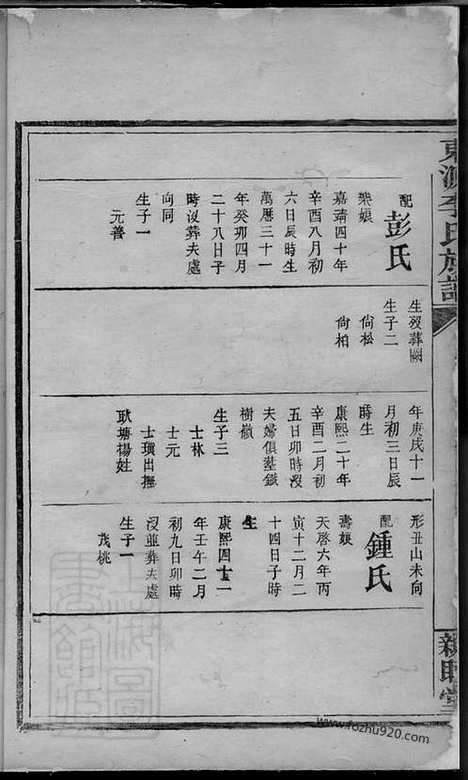 配彭氏
嘉靖四十年
辛酉八月初
六日辰時生
萬曆三十一
年癸卯四月
二十八日子
時沒葬夫處
向同
生子一
元善
生歿葬闕
生子二
尙松
尙柏
年庚戌十一
月初三日辰
時生
康熙二十年
辛酉二月初
五日卯時沒
夫婦俱葬鐵
樹嶺
生子三
士林
士元
士璵出撫
耿塘楊姓
形丑山未向
配鍾氏
壽娘
天啓六年丙
寅十二月二
十四日子時
生
康熙四十一
年壬午二月
初九日卯時
沒並葬夫處
生子一
茂桃
李氏族譜
親睦堂
www.fozhu920.com